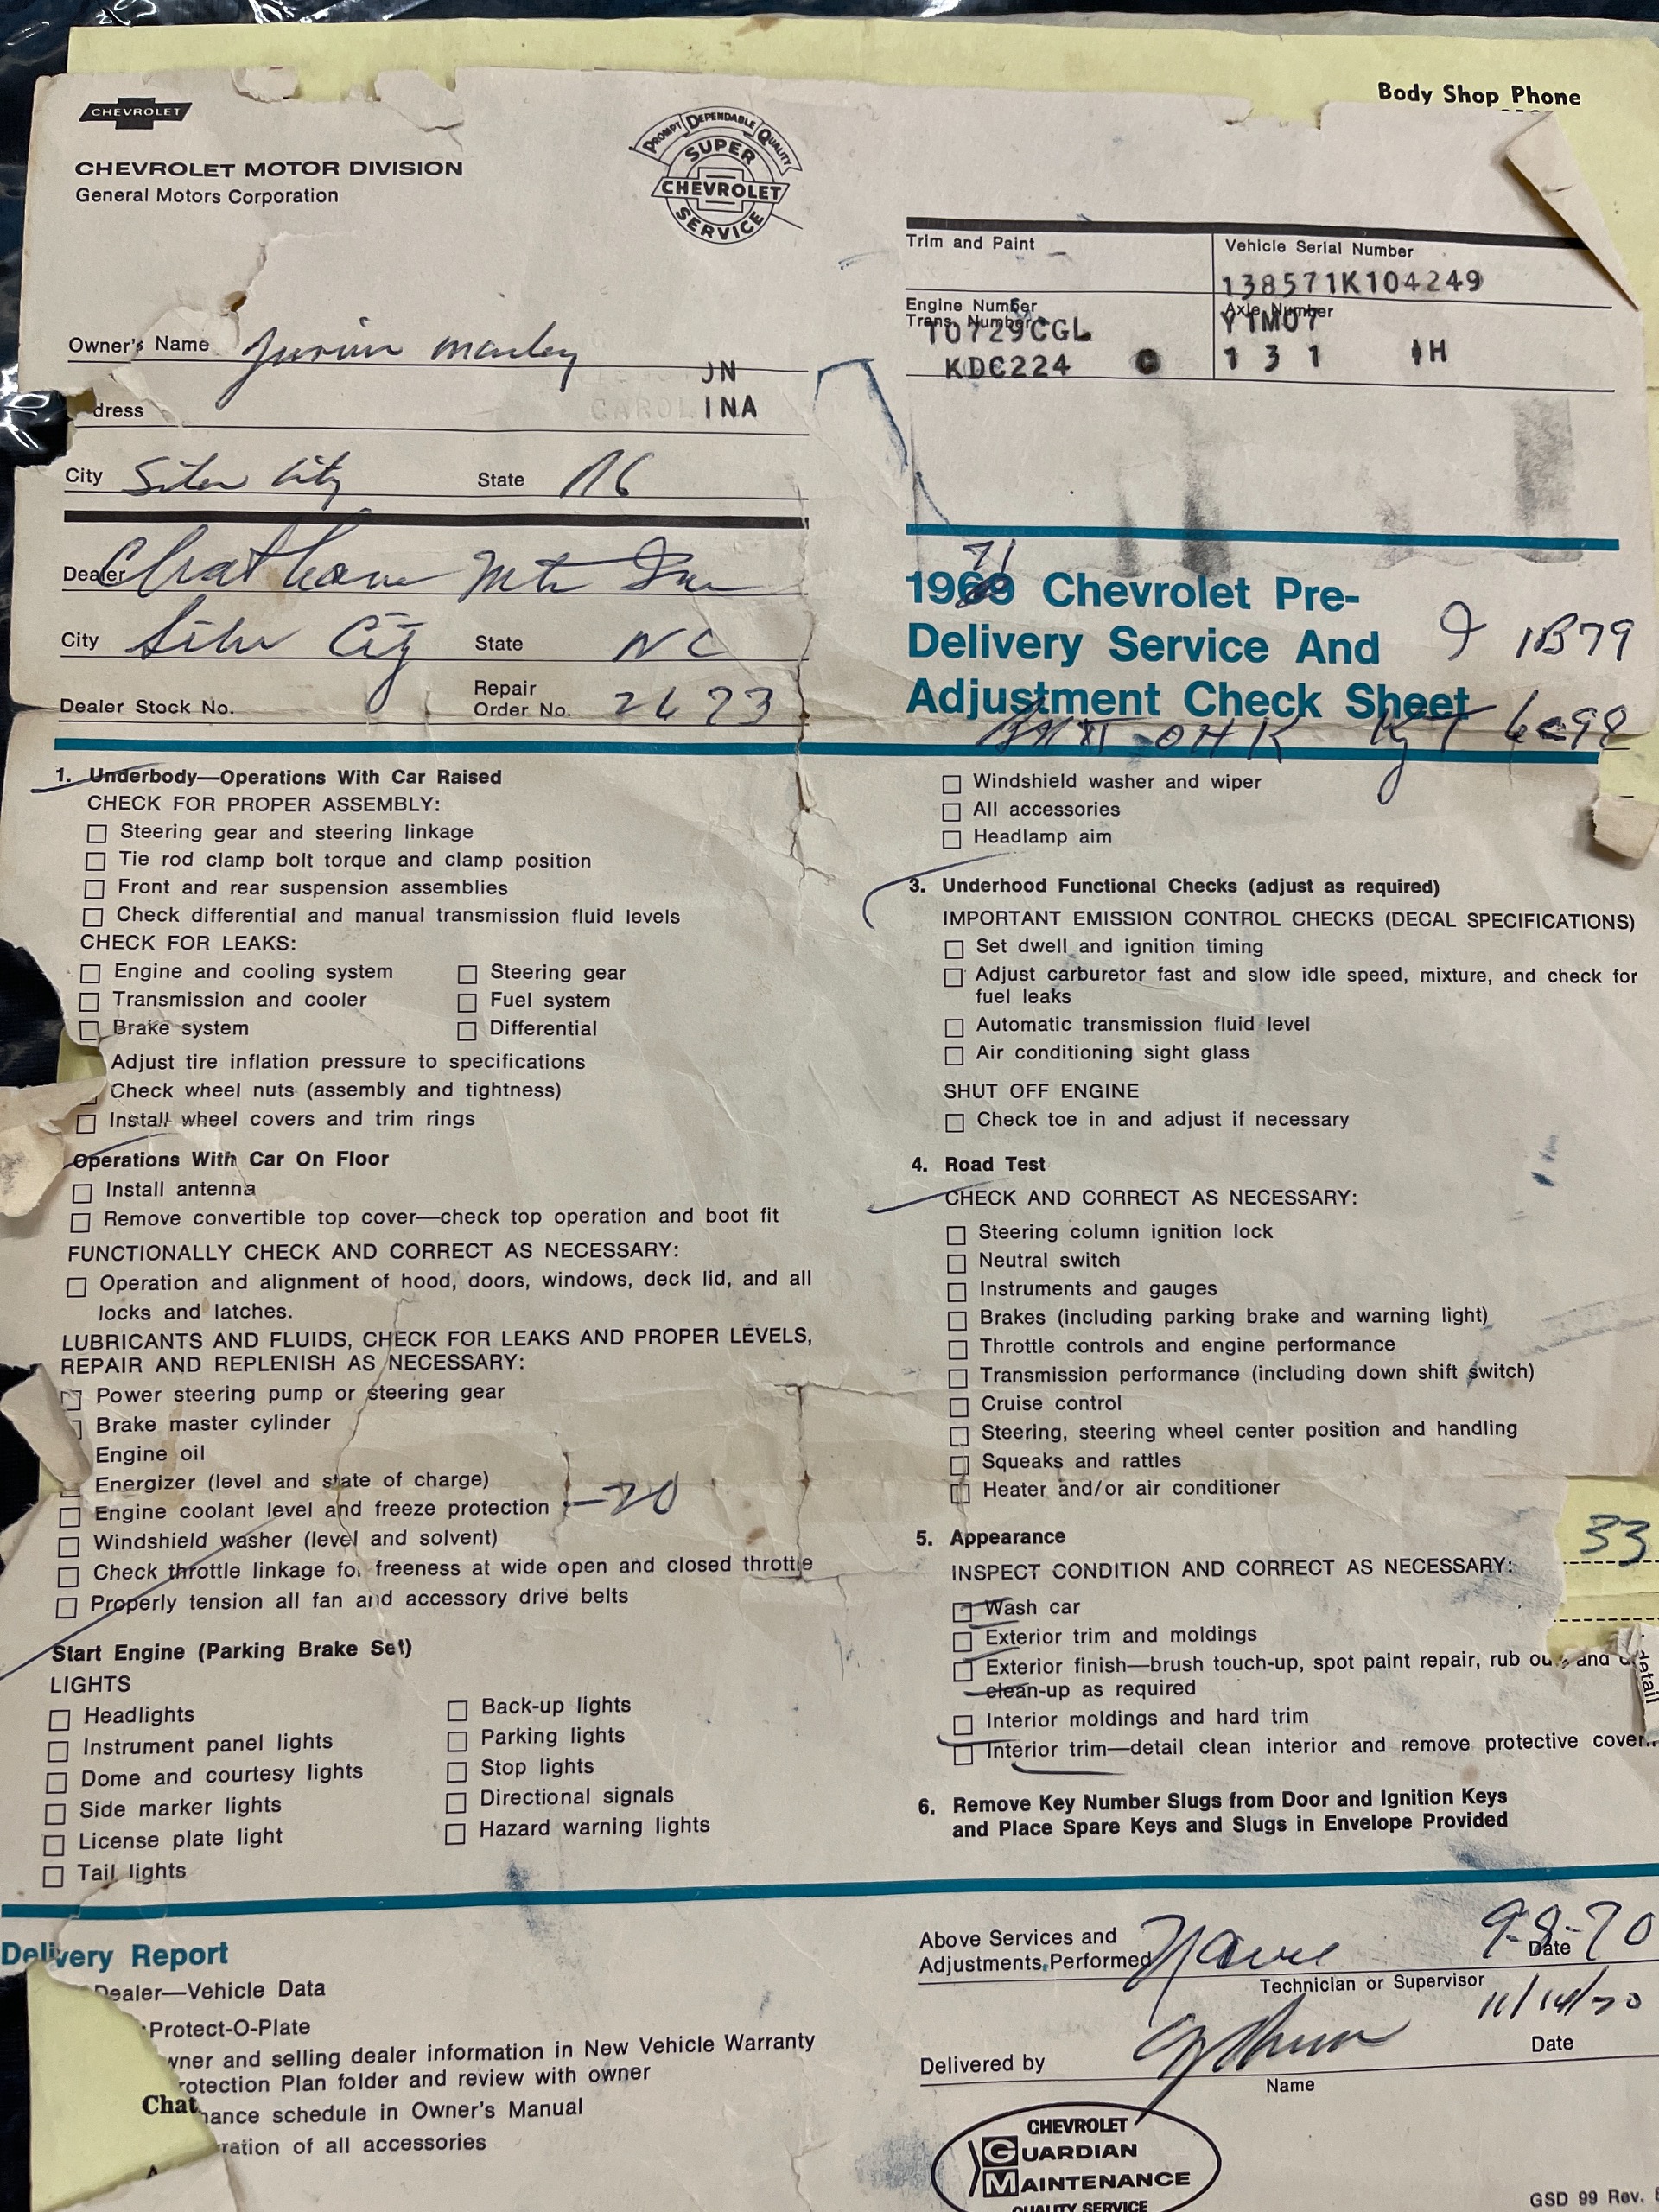 Body Shop Phone
CHEVROLET
CHEVROLET MOTOR DIVISION
General Motors Corporation
PROMPT DEPENDABLE QUALITY
SUPER
CHEVROLET
SERVICE
Trim and Paint
Vehicle Serial Number
138571K104249
Engine Number
Trans. Number
T0729CGL
KDC224 C
Axle Number
Y1M07
131 1H
Owner's Name
JN
dress
CAROLINA
City Siler City State NC
Dealer Chatham Mtr Inc
City Siler City State NC
Dealer Stock No.
Repair
Order No. 2673
71
1969 Chevrolet Pre-
Delivery Service And
Adjustment Check Sheet
1B79
1. Underbody—Operations With Car Raised
CHECK FOR PROPER ASSEMBLY:
Steering gear and steering linkage
Tie rod clamp bolt torque and clamp position
Front and rear suspension assemblies
Check differential and manual transmission fluid levels
CHECK FOR LEAKS:
Engine and cooling system
Steering gear
Transmission and cooler
Fuel system
Brake system
Differential
Adjust tire inflation pressure to specifications
Check wheel nuts (assembly and tightness)
Install wheel covers and trim rings
Operations With Car On Floor
Install antenna
Remove convertible top cover—check top operation and boot fit
FUNCTIONALLY CHECK AND CORRECT AS NECESSARY:
Operation and alignment of hood, doors, windows, deck lid, and all
locks and latches.
LUBRICANTS AND FLUIDS, CHECK FOR LEAKS AND PROPER LEVELS,
REPAIR AND REPLENISH AS NECESSARY:
Power steering pump or steering gear
Brake master cylinder
Engine oil
Energizer (level and state of charge)
Engine coolant level and freeze protection -20
Windshield washer (level and solvent)
Check throttle linkage for freeness at wide open and closed throttle
Properly tension all fan and accessory drive belts
Start Engine (Parking Brake Set)
LIGHTS
Headlights
Instrument panel lights
Dome and courtesy lights
Side marker lights
License plate light
Tail lights
Back-up lights
Parking lights
Stop lights
Directional signals
Hazard warning lights
Windshield washer and wiper
All accessories
Headlamp aim
3. Underhood Functional Checks (adjust as required)
IMPORTANT EMISSION CONTROL CHECKS (DECAL SPECIFICATIONS)
Set dwell and ignition timing
Adjust carburetor fast and slow idle speed, mixture, and check for
fuel leaks
Automatic transmission fluid level
Air conditioning sight glass
SHUT OFF ENGINE
Check toe in and adjust if necessary
4. Road Test
CHECK AND CORRECT AS NECESSARY:
Steering column ignition lock
Neutral switch
Instruments and gauges
Brakes (including parking brake and warning light)
Throttle controls and engine performance
Transmission performance (including down shift switch)
Cruise control
Steering, steering wheel center position and handling
Squeaks and rattles
Heater and/or air conditioner
33
5. Appearance
INSPECT CONDITION AND CORRECT AS NECESSARY:
Wash car
Exterior trim and moldings
Exterior finish—brush touch-up, spot paint repair, rub out, and
clean-up as required
detail
Interior moldings and hard trim
Interior trim—detail clean interior and remove protective cover
6. Remove Key Number Slugs from Door and Ignition Keys
and Place Spare Keys and Slugs in Envelope Provided
Delivery Report
Dealer—Vehicle Data
Protect-O-Plate
wner and selling dealer information in New Vehicle Warranty
rotection Plan folder and review with owner
Chat
nance schedule in Owner's Manual
ration of all accessories
Above Services and
Adjustments Performed
9-8-70
Date
Technician or Supervisor
11/14/70
Delivered by
Date
Name
CHEVROLET
GUARDIAN
MAINTENANCE
QUALITY SERVICE
GSD 99 Rev.